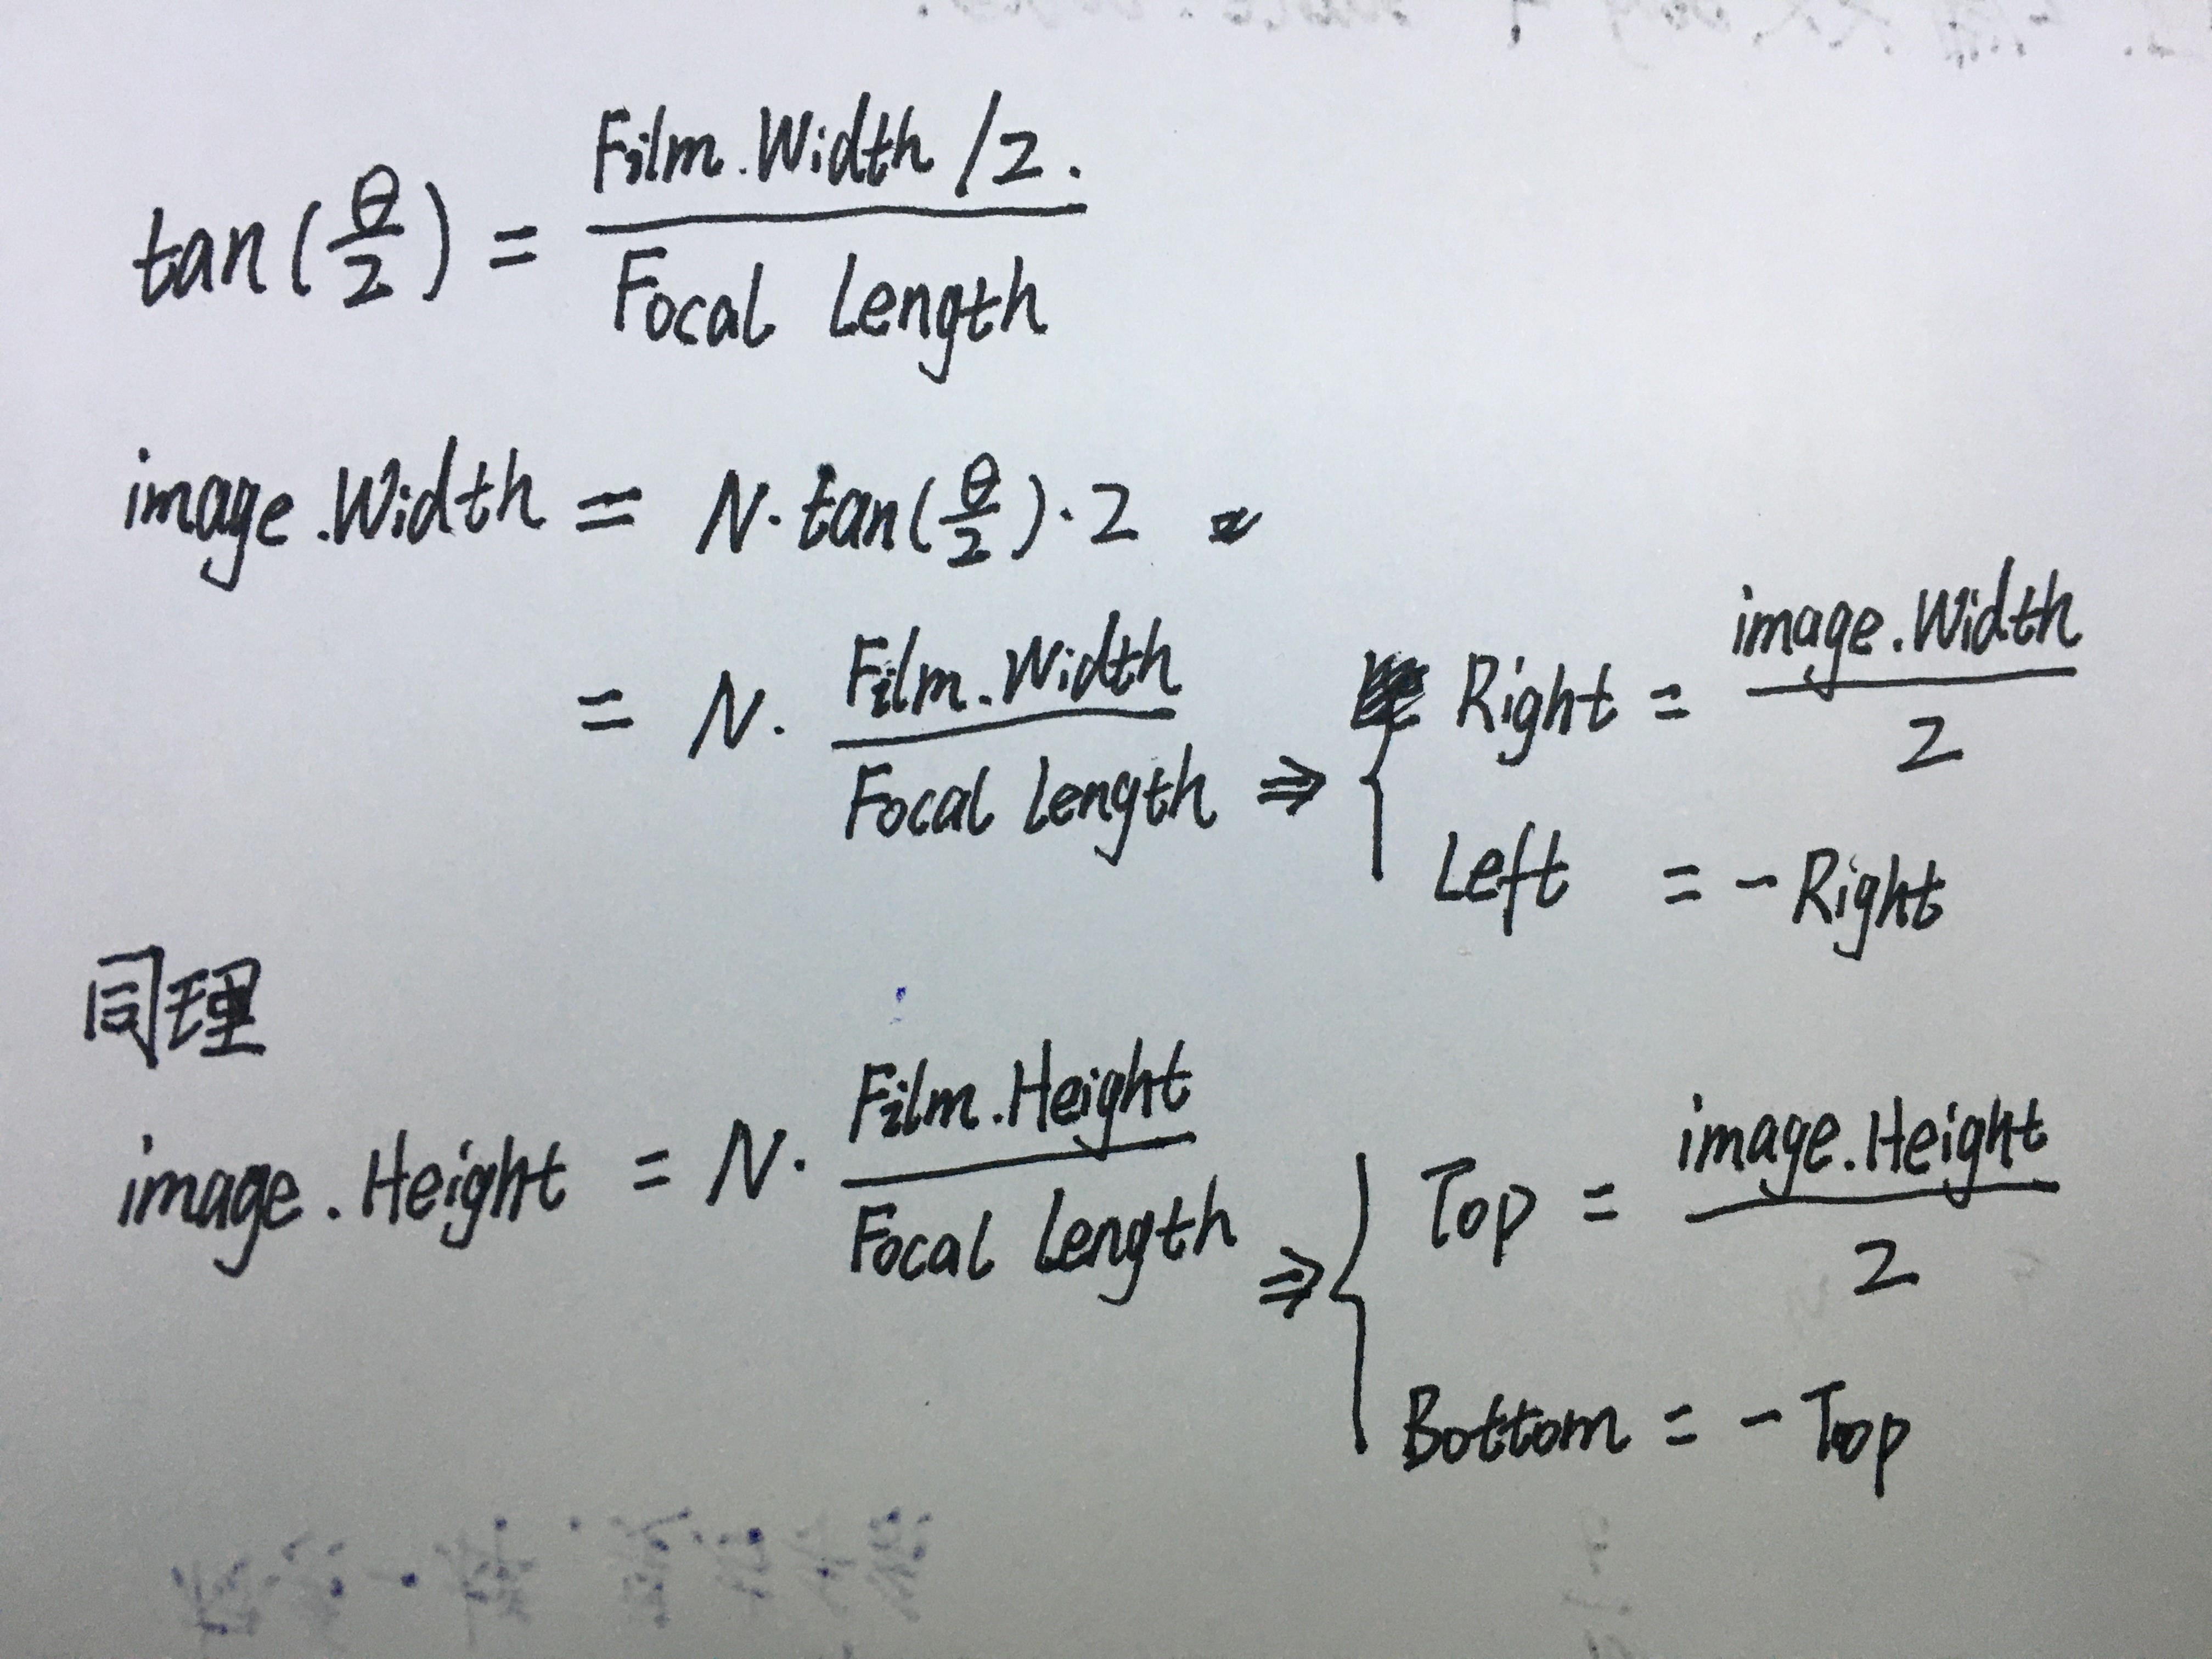 tan(θ/2) = (Film.Width /2.) / (Focal Length)
image.Width = N·tan(θ/2)·2
= N· Film.Width / Focal Length ⇒ { Right = image.Width / 2
Left = -Right
同理
image.Height = N· Film.Height / Focal Length ⇒ { Top = image.Height / 2
Bottom = -Top